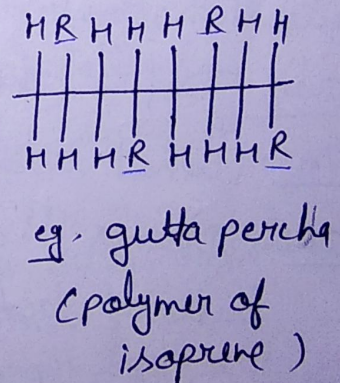 H R H H H R H H
H H H R H H H R
eg. gutta percha
(polymer of
isoprene)